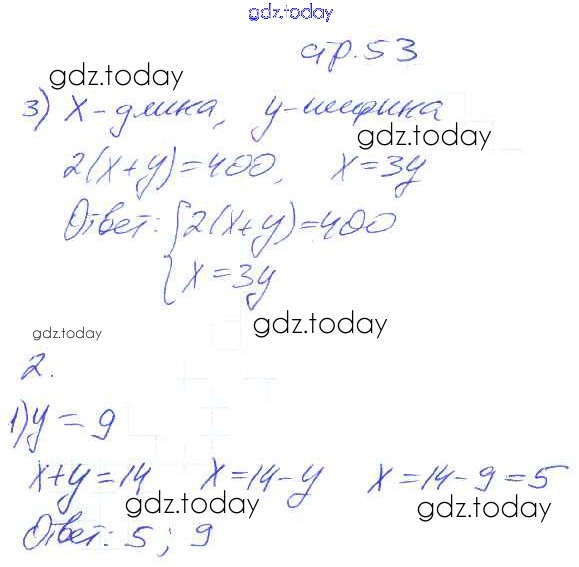 gdz.today
стр.53
gdz.today
3) x-длина, y-ширина
gdz.today
2(x+y)=400, x=3y
Ответ: {2(x+y)=400
{x=3y
gdz.today
gdz.today
2.
1) y=9
x+y=14 x=14-y x=14-9=5
gdz.today gdz.today
Ответ: 5; 9